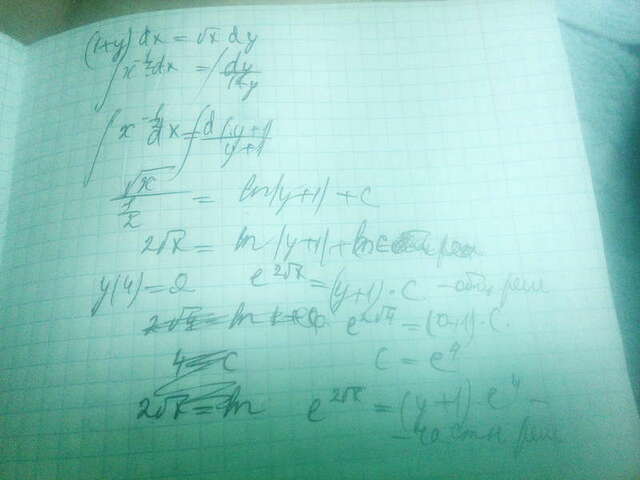 (1+y) dx = √x dy
∫ x^(-1/2) dx = ∫ dy/(1+y)
∫ x^(-1/2) dx = ∫ d(y+1)/(y+1)
√x / (1/2) = ln|y+1| + C
2√x = ln|y+1| + ln C
y(4) = 0 e^(2√x) = (y+1)·C - общ реш
2√4 = ln e^(2√4) = (0+1)·C
4 = C C = e^4
2√x = ln e^(2√x) = (y+1)·e^4 -
- частн реш